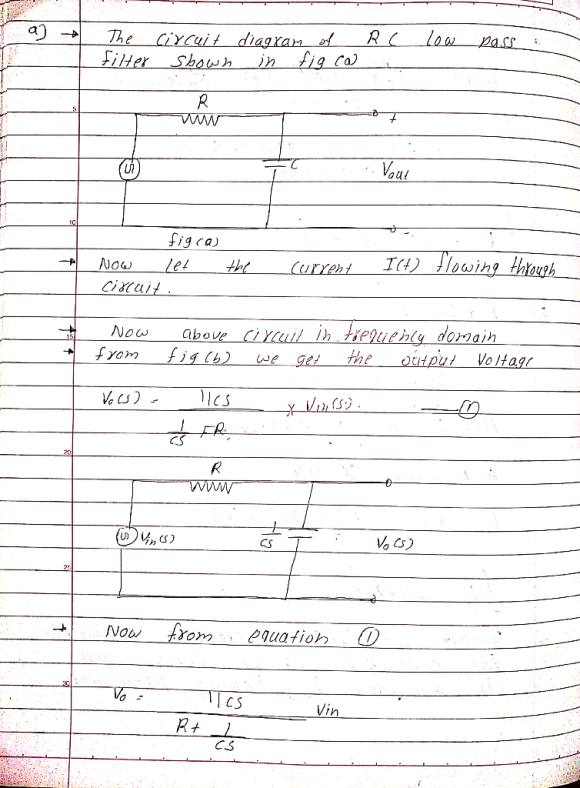 a) → The circuit diagram of RC low pass
filter shown in fig (a)
R
5
+
C
Vout
10
-
fig (a)
→ Now let the current I(t) flowing through
circuit.
→ Now above circuit in frequency domain
15
→ from fig (b) we get the output voltage
Vo(s) = 1/cs
x Vin(s). — (1)
1/cs + R.
20
R
Vin(s)
1/cs
Vo(s)
25
→ Now from equation (1)
30
Vo = 1/cs
Vin
R + 1/cs